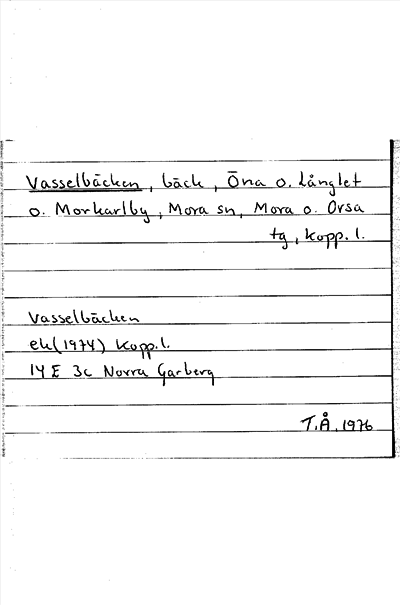 Vasselbäcken, bäck, Öna o. Långlet
o. Morkarlby, Mora sn, Mora o. Orsa
tg, Kopp. l.
Vasselbäcken
ek(1974) Kopp. l.
14 E 3c Norra Garberg
T.Å. 1976